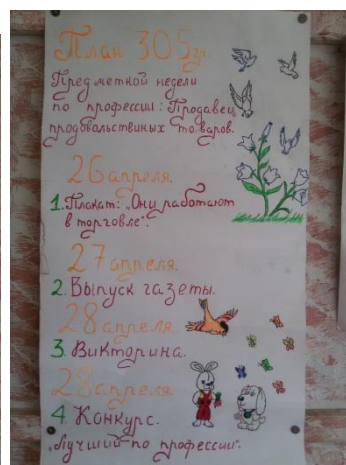 План 305гр.
Предметной недели
по профессии: Продавец
продовольствиных товаров.
26 апреля.
1. Плакат: „Они работают
в торговле".
27 апреля.
2. Выпуск газеты.
28 апреля
3. Викторина.
28 апреля
4. Конкурс.
„Лучший по профессии".